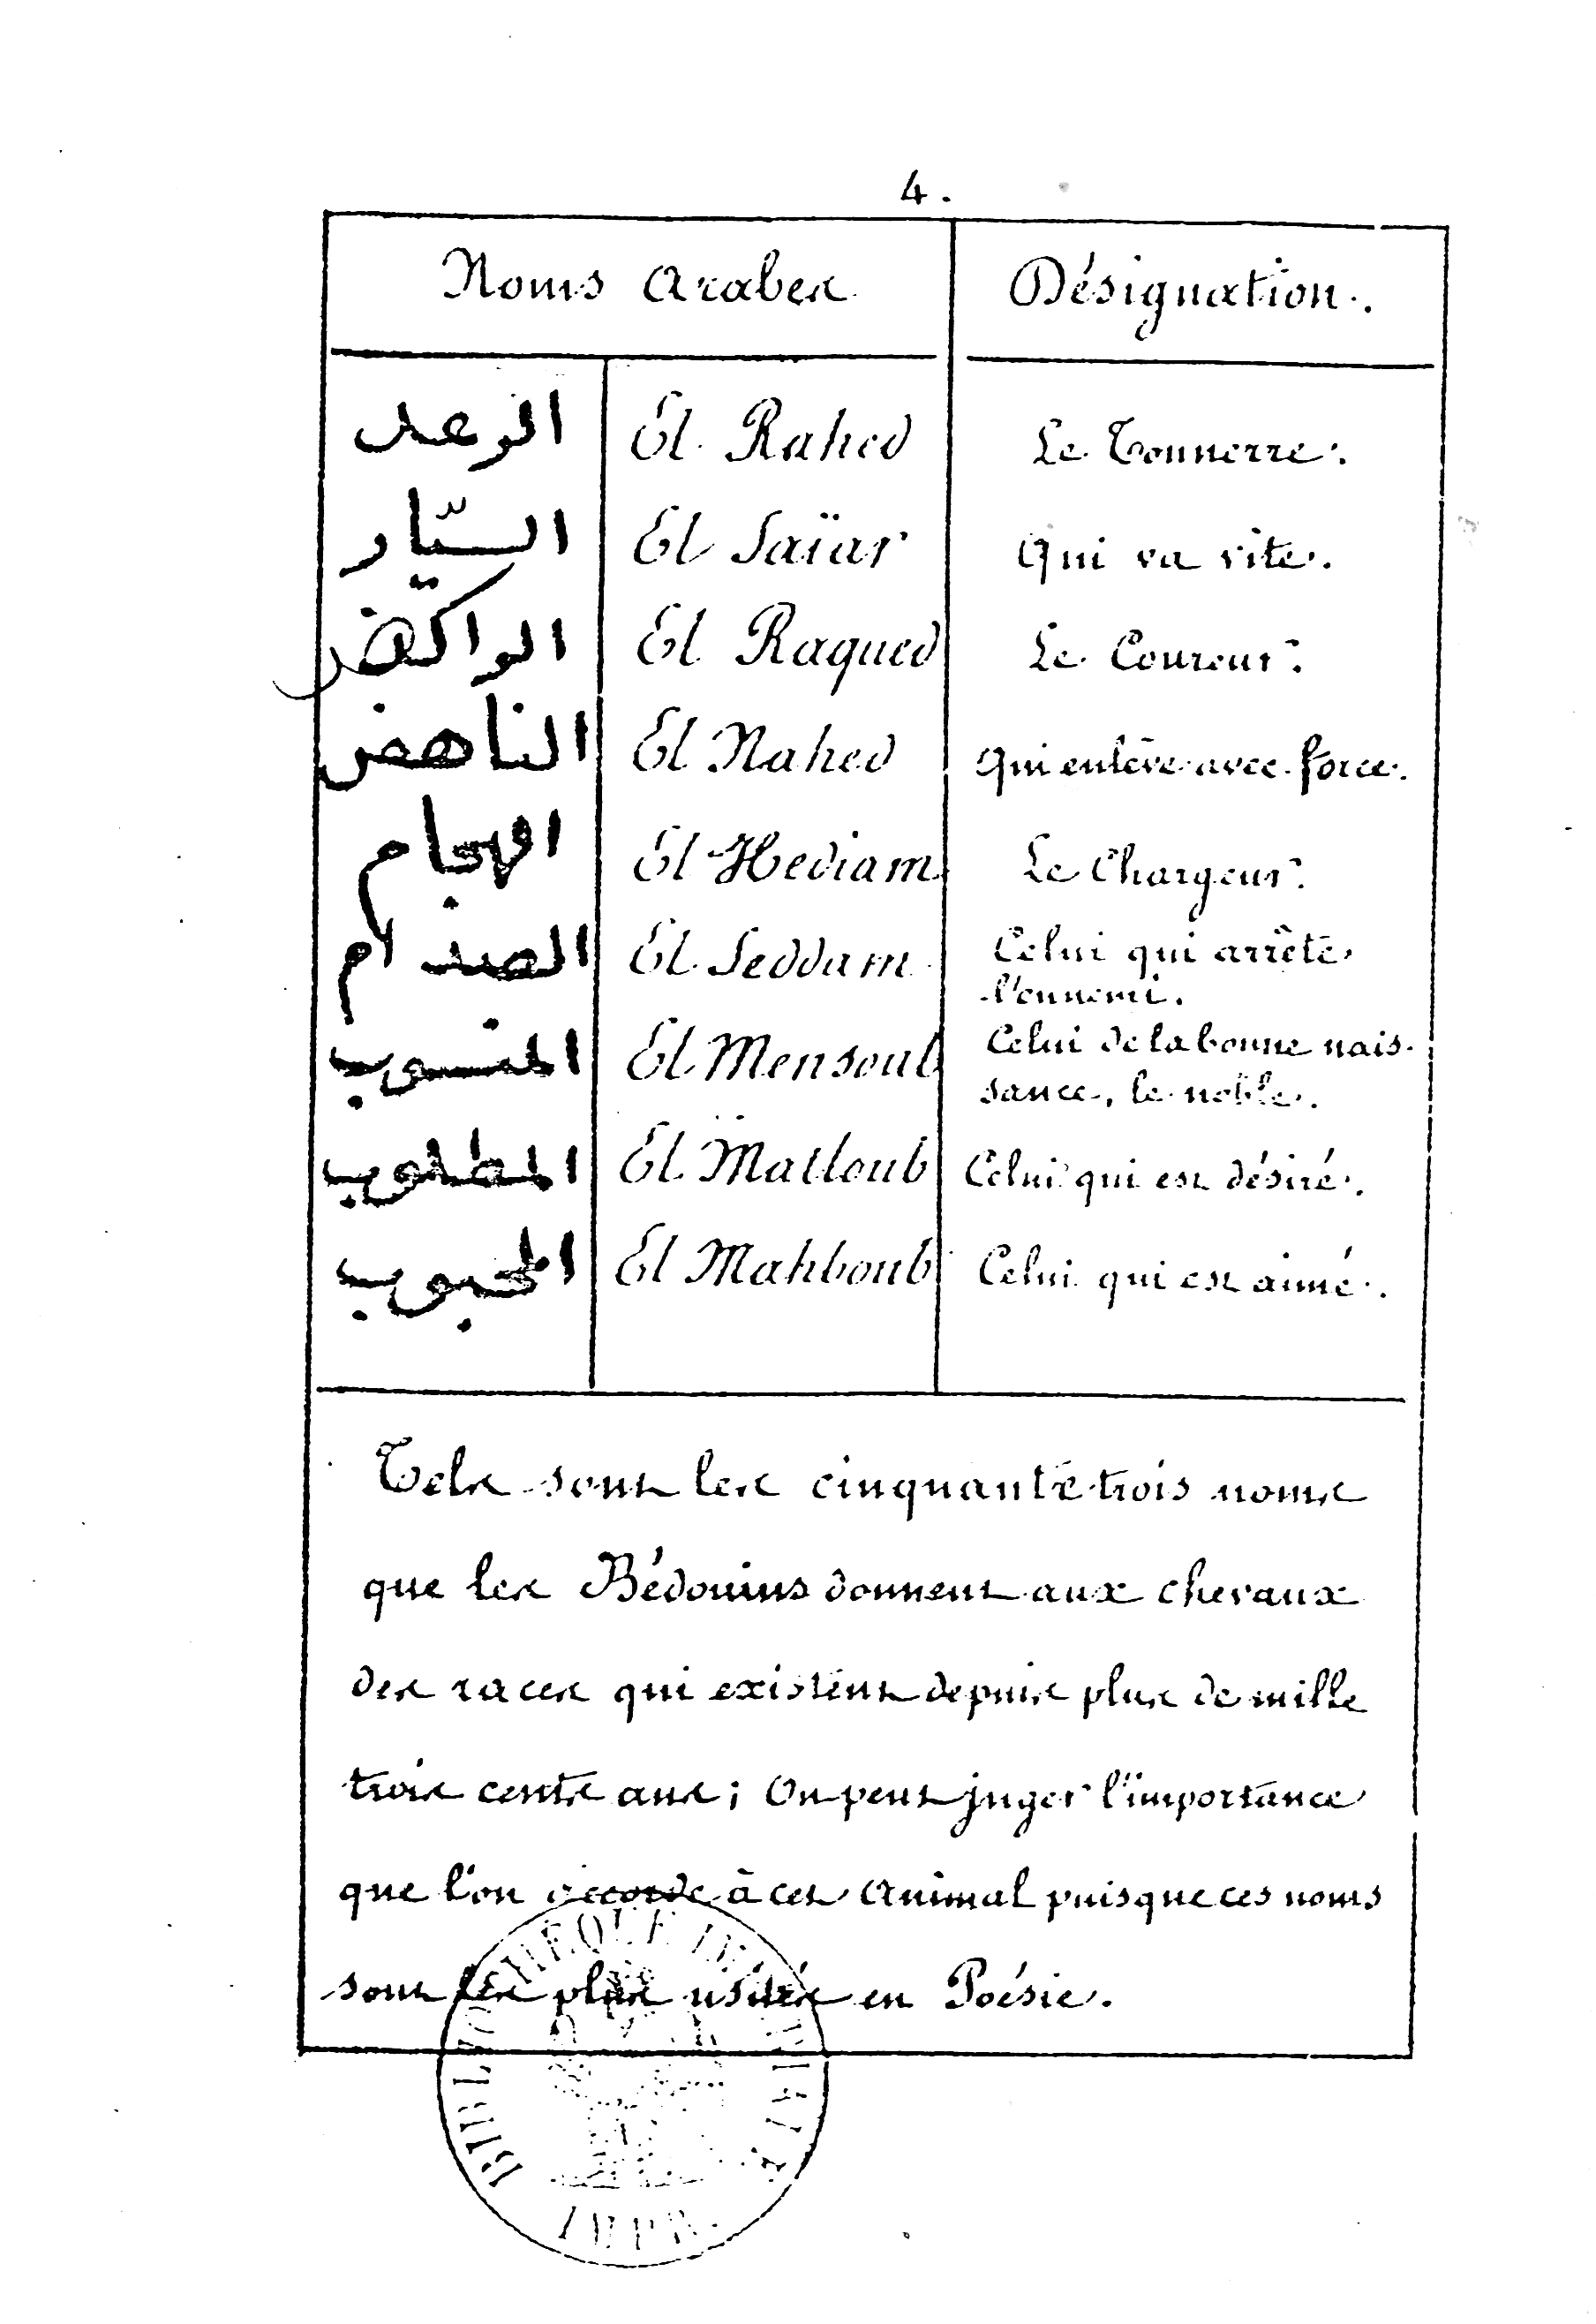 4.
Noms arabes
Désignation.
الرعد El Rahed Le Tonnerre.
السيّار El Saïar Qui va vite.
الراكض El Raqued Le Coureur.
الناهض El Nahed Qui enlève avec force.
الهجام El Hediam Le Chargeur.
الصدام El Seddam Celui qui arrête
l'ennemi.
المنسوب El Mensoub Celui de la bonne nais-
sance, le noble.
المطلوب El Matloub Celui qui est désiré.
المحبوب El Mahboub Celui qui est aimé.
Tels sont les cinquante trois noms
que les Bédouins donnent aux chevaux
des races qui existent depuis plus de mille
trois cents ans; On peut juger l'importance
que l'on accorde à cet animal puisque ces noms
sont les plus usités en Poésie.
BIBLIOTHEQUE IMPERIALE
IMPR.